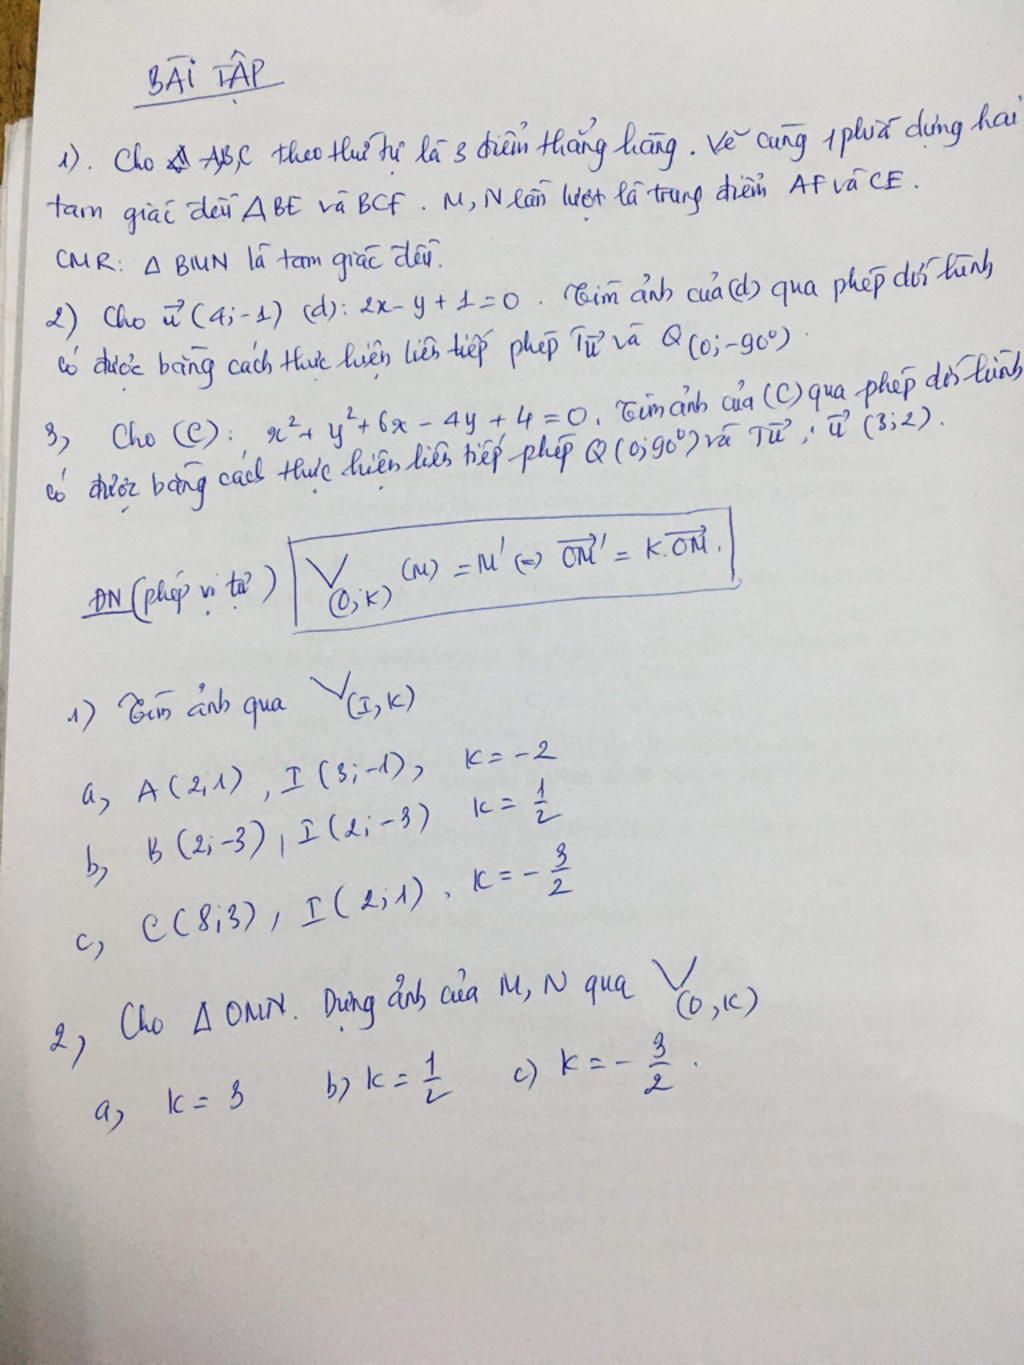 BÀI TẬP
1). Cho A,B,C theo thứ tự là 3 điểm thẳng hàng. Vẽ cùng 1 phía dựng hai
tam giác đều ABE và BCF. M, N lần lượt là trung điểm AF và CE.
CMR: Δ BMN là tam giác đều.
2) Cho u⃗ (4;-1) (d): 2x - y + 1 = 0. Tìm ảnh của (d) qua phép dời hình
có được bằng cách thực hiện liên tiếp phép Tu⃗ và Q(0;-90°).
3, Cho (C): x² + y² + 6x - 4y + 4 = 0. Tìm ảnh của (C) qua phép dời hình
có được bằng cách thực hiện liên tiếp phép Q(0;90°) và Tu⃗, u⃗ (3;2).
ĐN (phép vị tự) V(O,K) (M) = M' (=) OM⃗' = K.OM⃗.
1) Tìm ảnh qua V(I,K)
a, A(2;1), I(3;-1), K = -2
b, B(2;-3), I(2;-3) K = 1/2
c, C(8;3), I(2;1). K = - 3/2
2, Cho Δ OMN. Dựng ảnh của M, N qua V(O,K)
a, K = 3 b) K = 1/2 c) K = - 3/2.